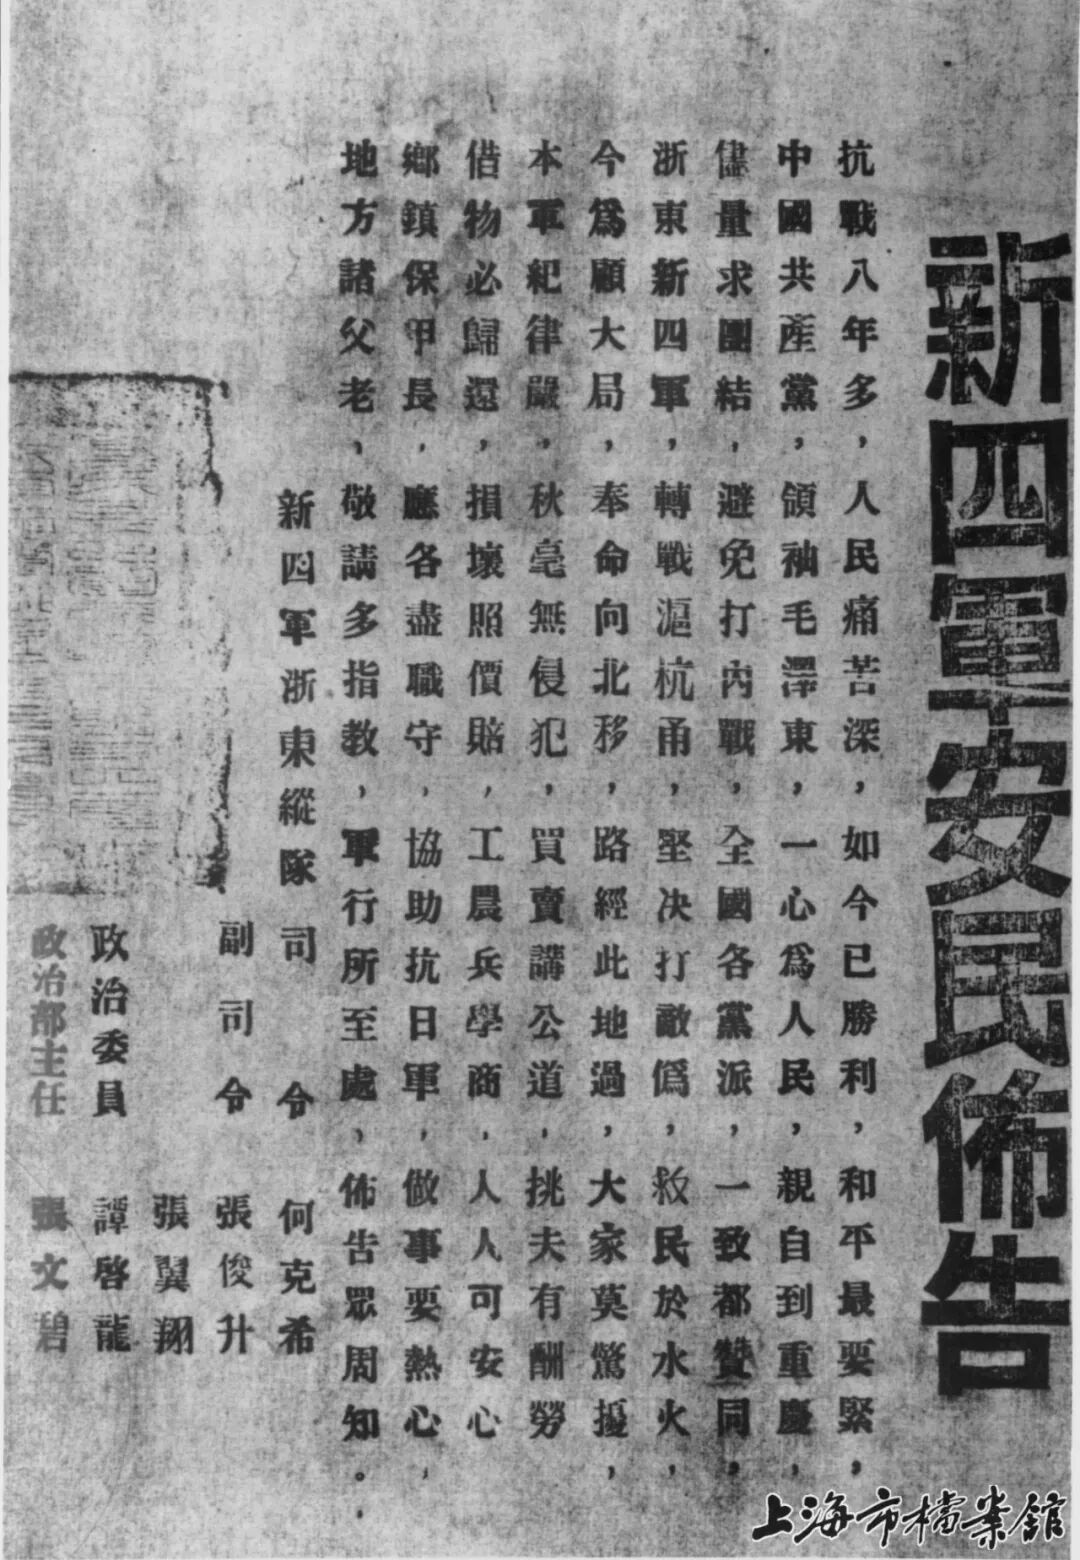 新四軍安民佈告
抗戰八年多，人民痛苦深，如今已勝利，和平最要緊，
中國共產黨，領袖毛澤東，一心為人民，親自到重慶，
儘量求團結，避免打內戰，全國各黨派，一致都贊同，
浙東新四軍，轉戰滬杭甬，堅決打敵僞，救民於水火，
今爲顧大局，奉命向北移，路經此地過，大家莫驚擾，
本軍紀律嚴，秋毫無侵犯，買賣講公道，挑夫有酬勞
借物必歸還，損壞照價賠，工農兵學商，人人可安心
鄉鎮保甲長，應各盡職守，協助抗日軍，做事要熱心，
地方諸父老，敬請多指教，軍行所至處，佈告眾周知。
新四軍浙東縱隊 司令 何克希
副司令 張俊升
張翼翔
政治委員 譚啓龍
政治部主任 張文碧
上海市檔案館